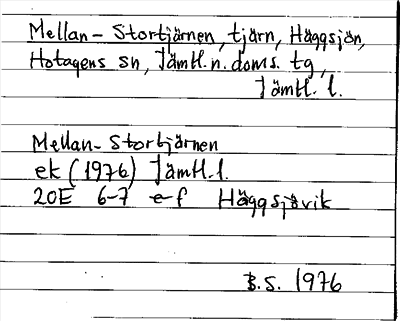 Mellan-Stortjärnen, tjärn, Häggsjön,
Hotagens sn, Jämtl. n. doms. tg,
Jämtl. l.
Mellan-Stortjärnen
ek (1976) Jämtl. l.
20E 6-7 e-f Häggsjövik
B.S. 1976